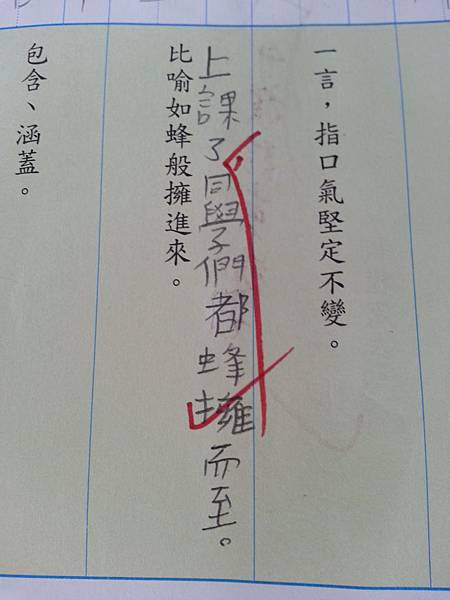 一言，指口氣堅定不變。
上課了同學們都蜂擁而至。
比喻如蜂般擁進來。
包含、涵蓋。